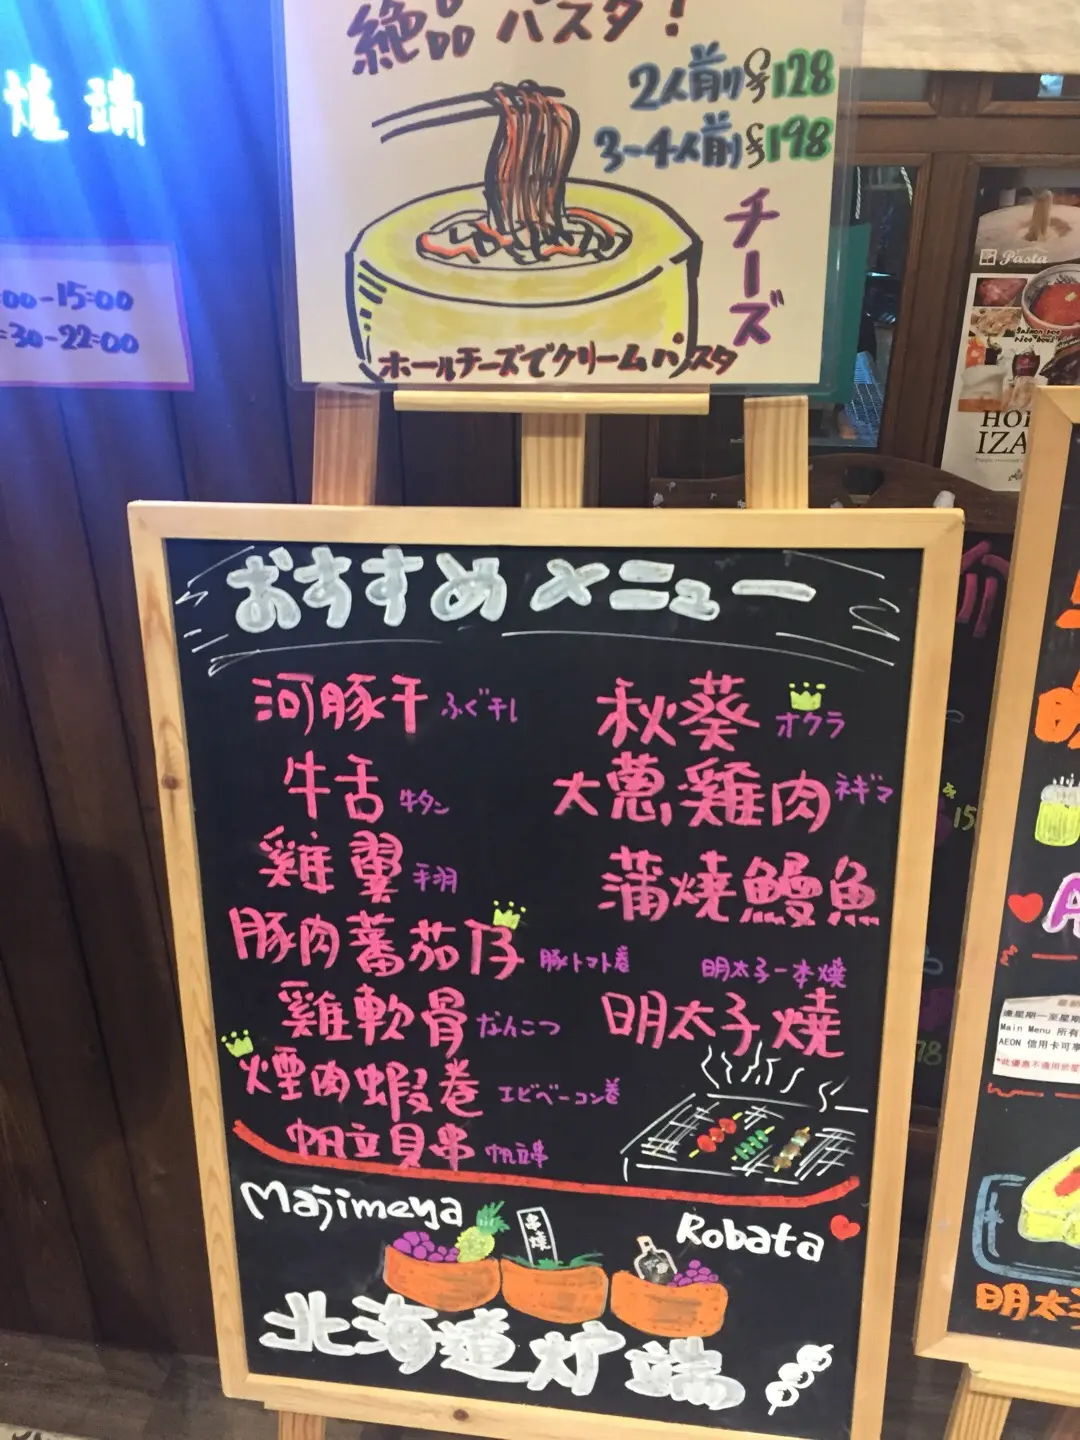 絶品パスタ!
2人前 128
3-4人前 198
チーズ
ホールチーズでクリームパスタ
爐端
:00-15:00
:30-22:00
Pasta
salmon roe
rice bowl
HO
IZA
おすすめメニュー
河豚干 ふぐ干し
牛舌 牛タン
雞翼 手羽
豚肉蕃茄仔 豚トマト巻
雞軟骨 なんこつ
煙肉蝦卷 エビベーコン巻
帆立貝串 帆立串
秋葵 オクラ
大蔥雞肉 ネギマ
蒲燒鰻魚
明太子一本燒
明太子燒
Majimeya
串燒
Robata
北海道炉端
15
78
逢星期一至星期
Main Menu 所有
AEON 信用卡可享
*此優惠不適用於星
明太子